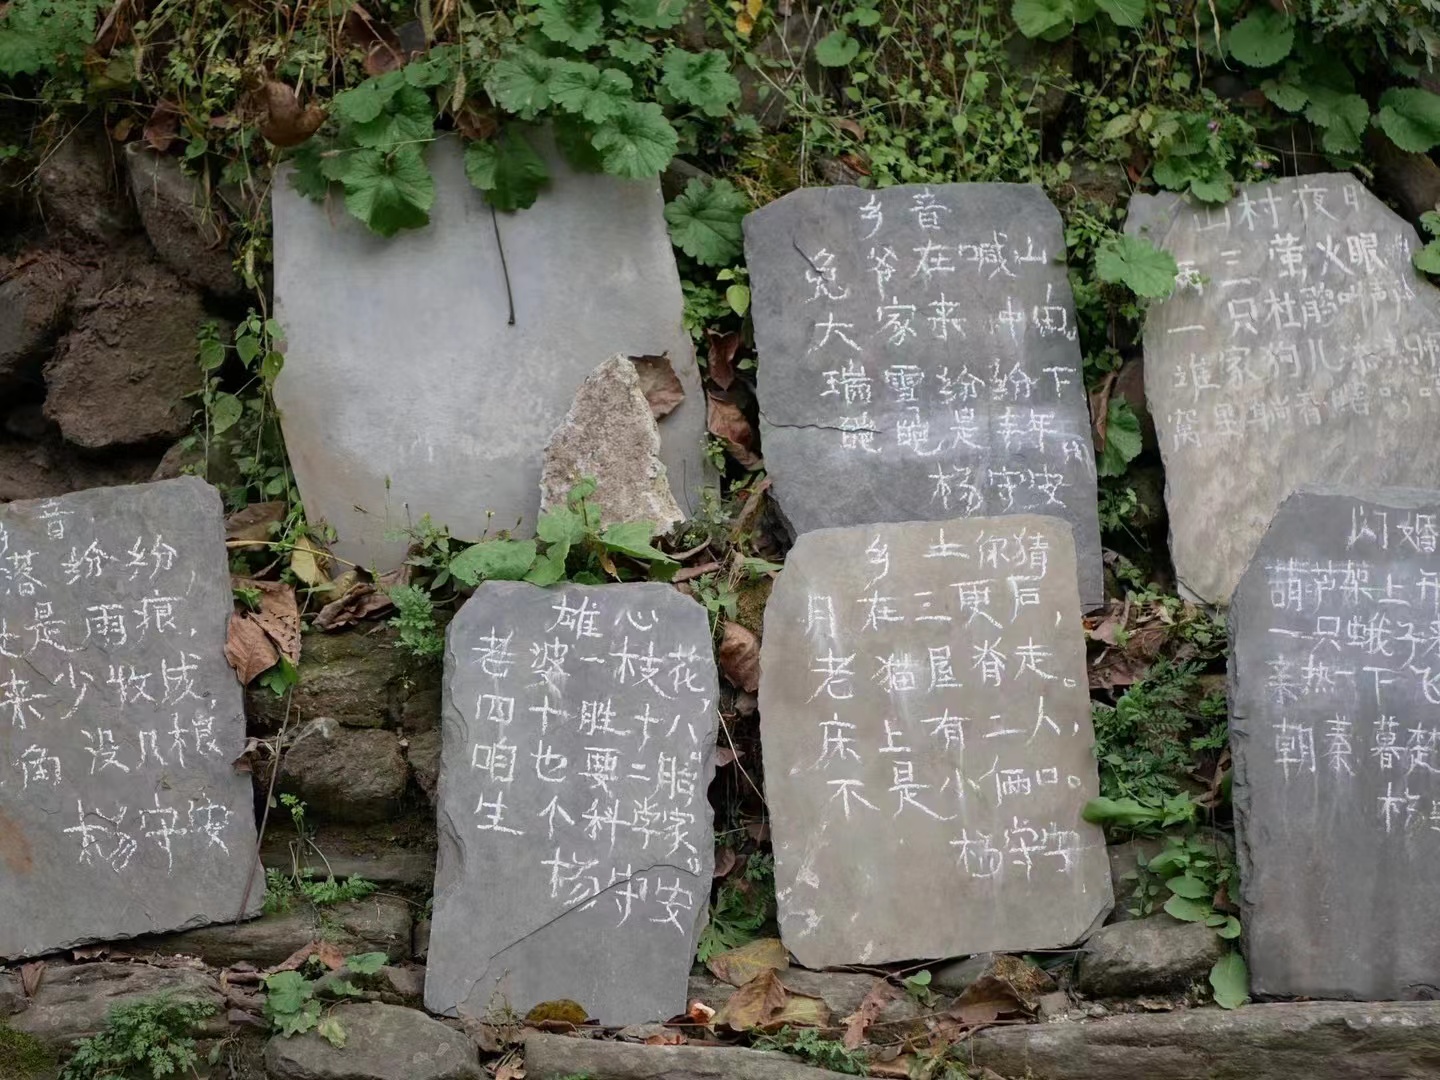 乡音
兔爷在喊山
大家来中由。
瑞雪纷纷下
皑皑是丰年
杨守安
山村夜
三萤火眼
一只杜鹃叫
谁家狗儿
窝里躺着瞎
音
落纷纷,
是雨痕,
来少牧成,
角没几根
杨守安
雄心
老婆一枝花,
四十胜十八。
咱也要二胎
生个科学家。
杨守安
乡土你猜
月在三更后,
老猫屋脊走。
床上有二人,
不是小俩口。
杨守安
闪婚
葫芦架上
一只蛾子
亲热一下飞
朝秦暮楚
杨